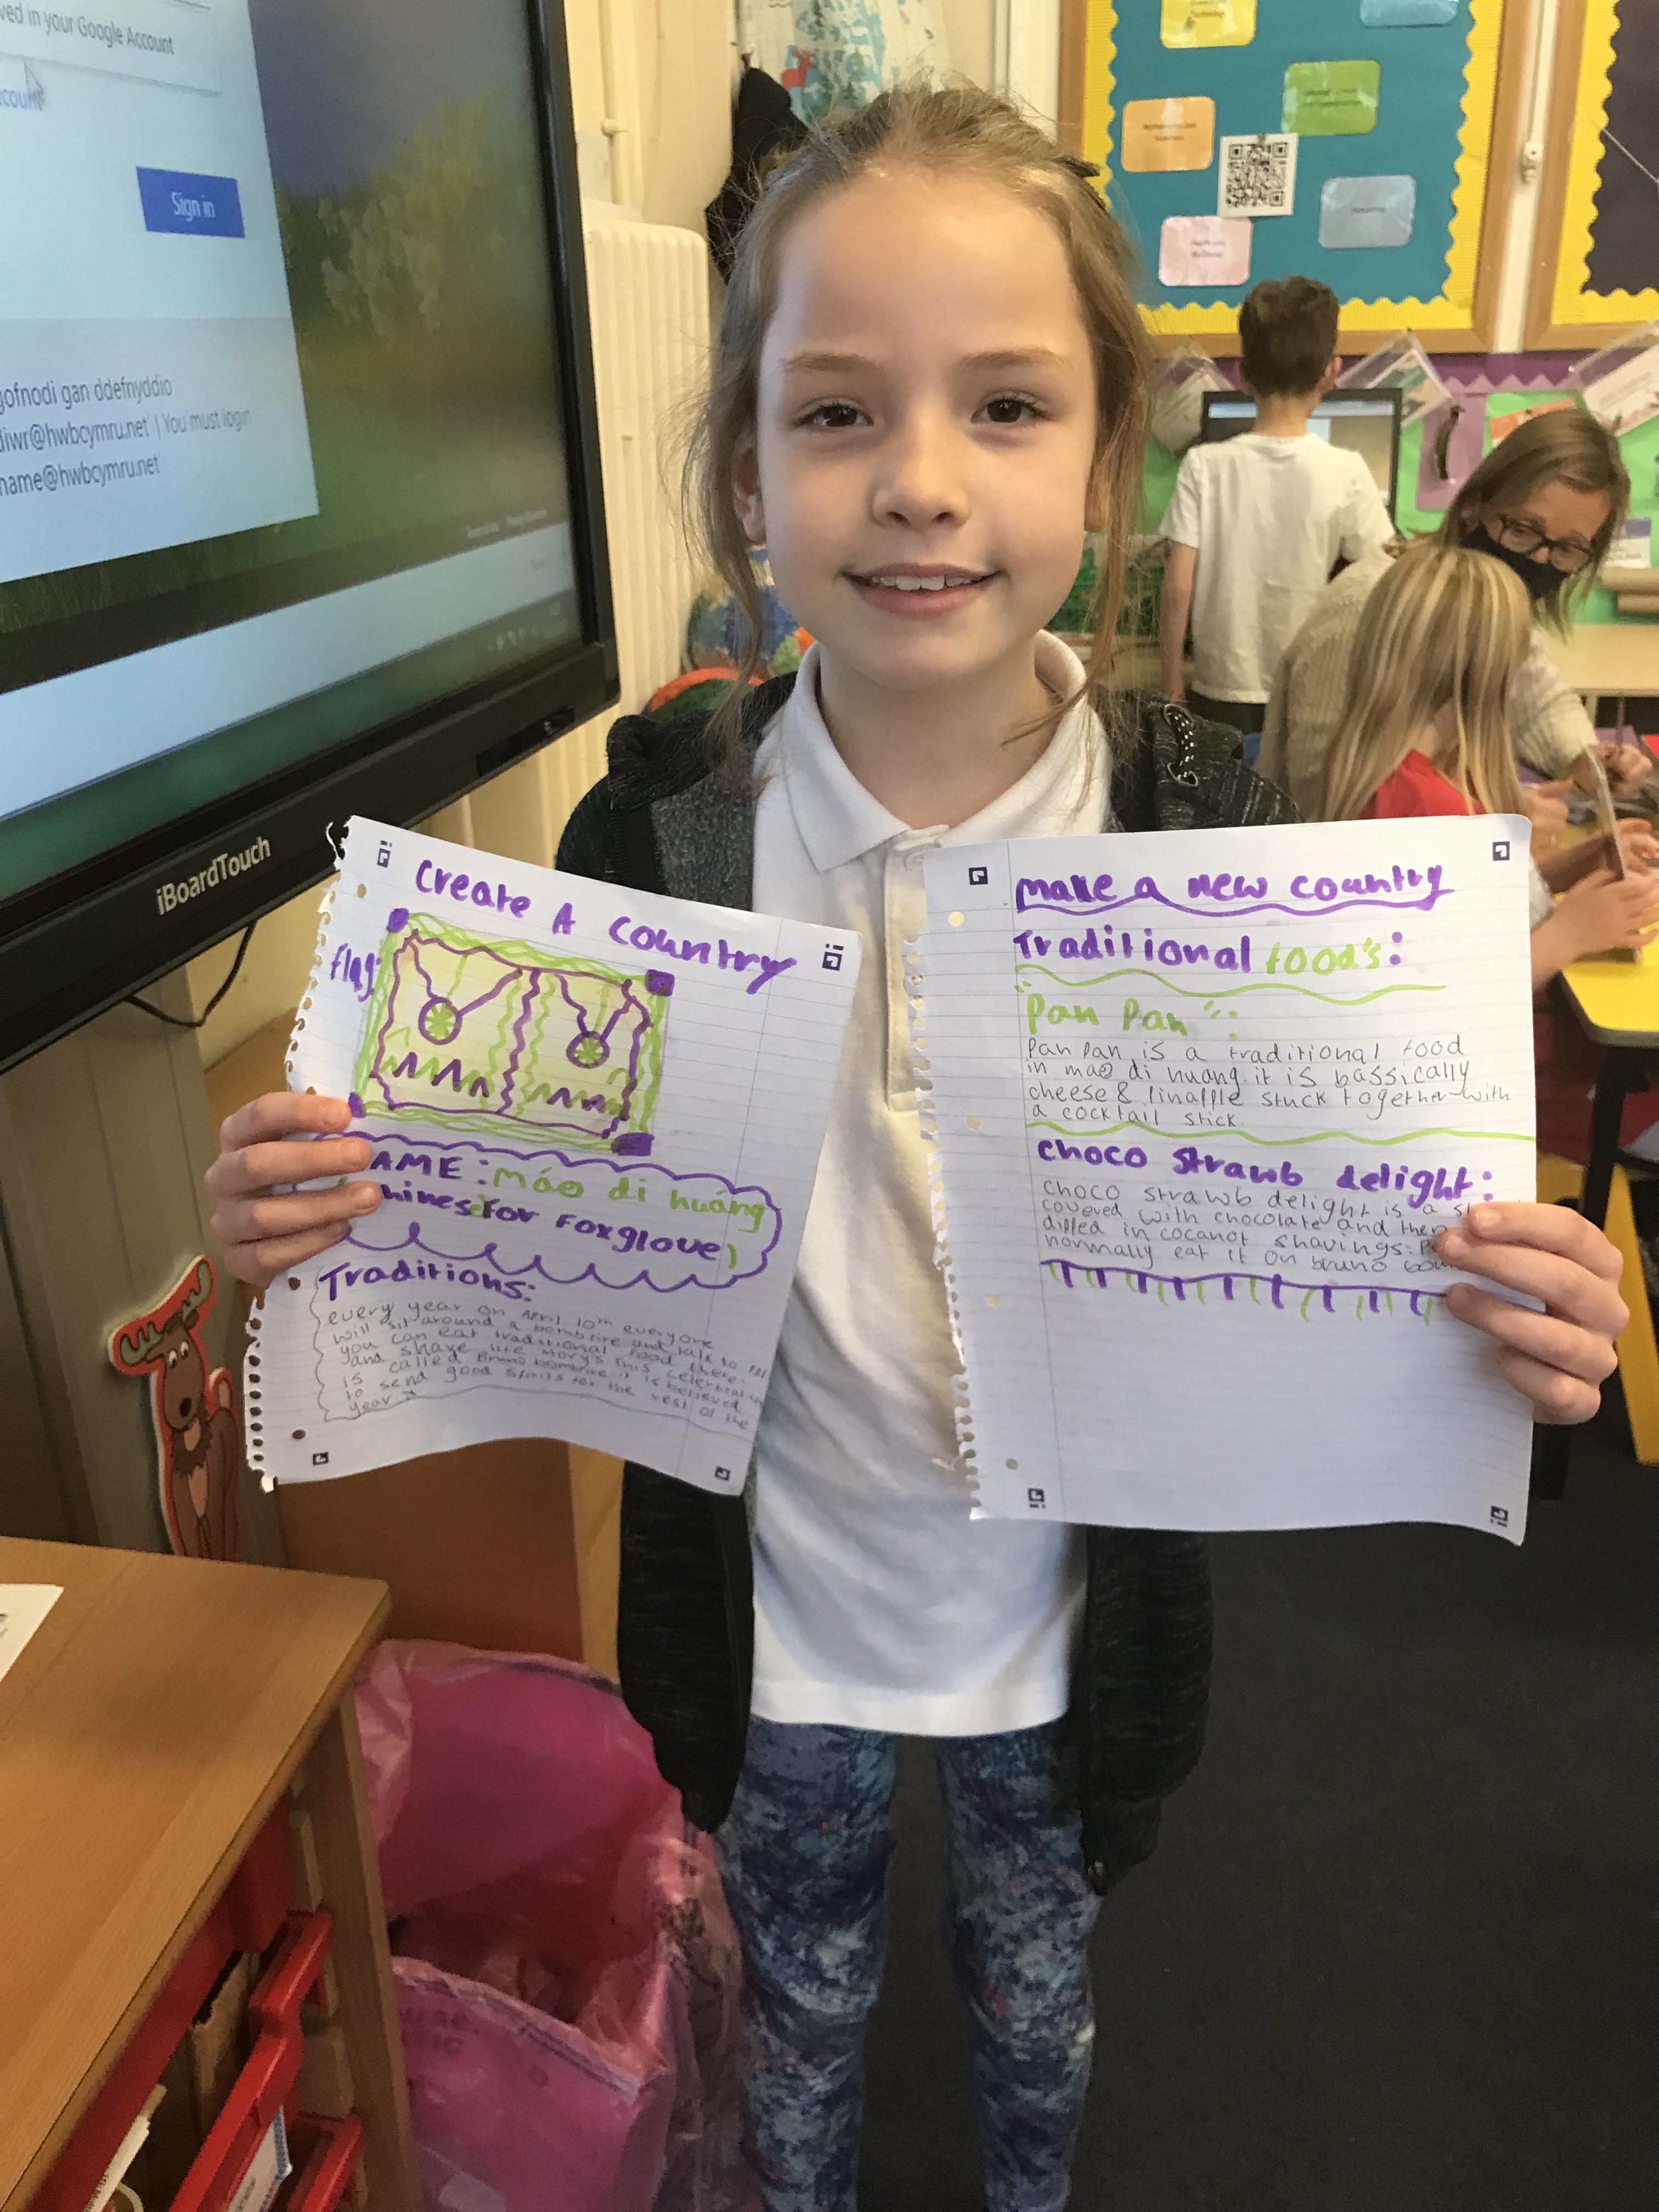 ved in your Google Account
count
Sign in
gofnodi gan ddefnyddio
diwr@hwbcymru.net' | You must login
name@hwbcymru.net'
iBoardTouch
Create A Country
flag:
AME: máo di huáng
hinese for Foxglove)
Traditions:
every year on April 10th everyone
will sit around a bombfire and talk to
you can eat traditional food there
and share life story's this
is called Bruno bombfire it is believed
to send good spirits for the rest of the
year
make a new country
Traditional food's:
"Pan Pan":
Pan Pan is a traditional food
in mao di huang. it is bassically
cheese & Pinapple stuck together with
a cocktail stick.
choco strawb delight:
choco strawb delight is a st
covered with chocolate and then
dipped in cocanot shavings. Pe
normally eat it on bruno bom